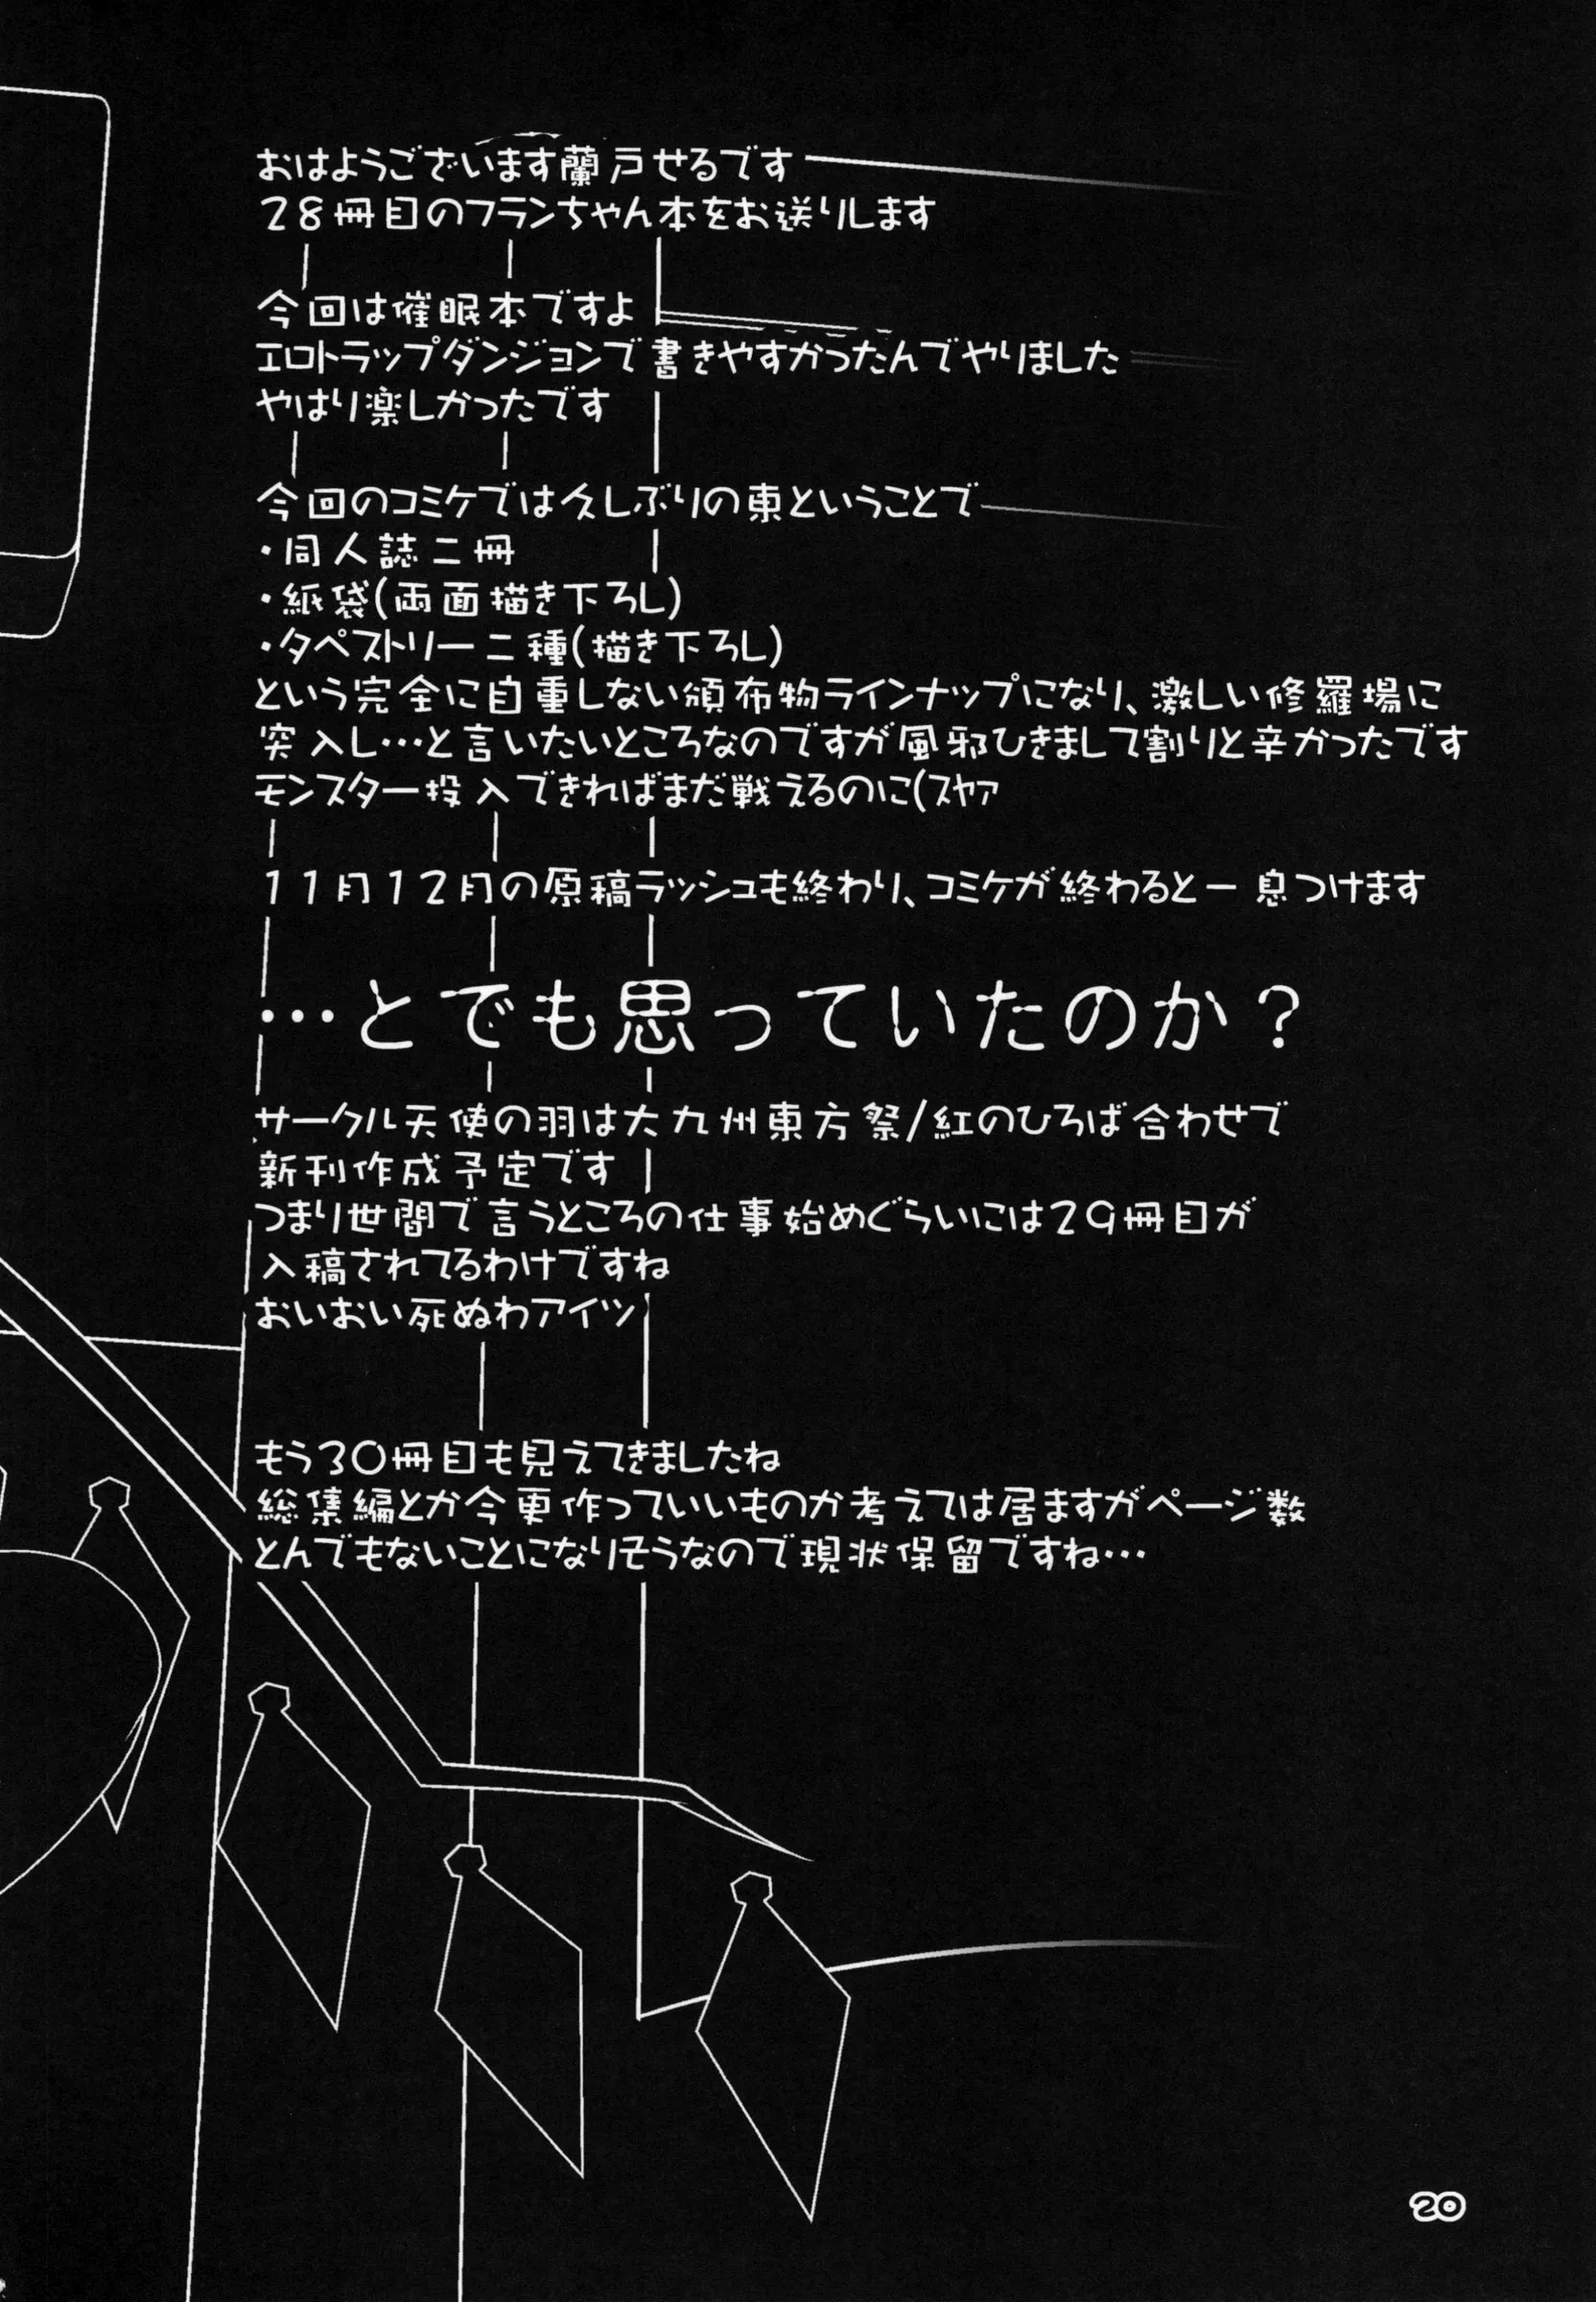 おはようございます蘭戸せるです
28冊目のフランちゃん本をお送りします
今回は催眠本ですよ
エロトラップダンジョンで書きやすかったんでやりました
やはり楽しかったです
今回のコミケでは久しぶりの東ということで
・同人誌二冊
・紙袋(両面描き下ろし)
・タペストリー二種(描き下ろし)
という完全に自重しない頒布物ラインナップになり、激しい修羅場に
突入し…と言いたいところなのですが風邪ひきまして割りと辛かったです
モンスター投入できればまだ戦えるのに(スヤァ
11月12月の原稿ラッシュも終わり、コミケが終わると一息つけます
…とでも思っていたのか?
サークル天使の羽は大九州東方祭/紅のひろば合わせで
新刊作成予定です
つまり世間で言うところの仕事始めぐらいには29冊目が
入稿されてるわけですね
おいおい死ぬわアイツ
もう30冊目も見えてきましたね
総集編とか今更作っていいものか考えては居ますがページ数
とんでもないことになりそうなので現状保留ですね…
20